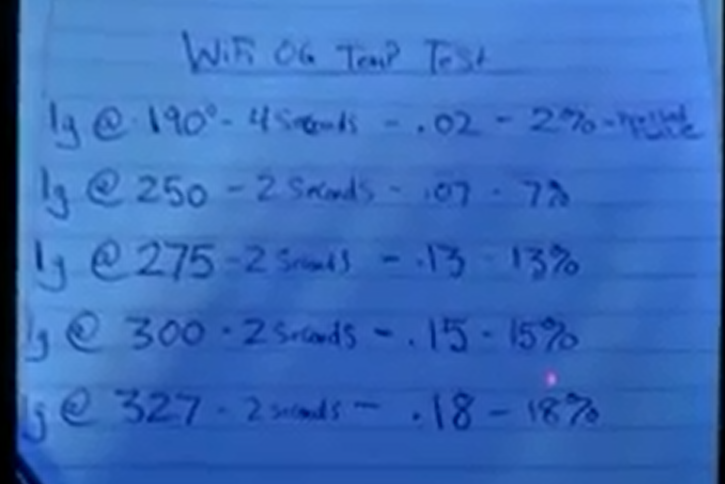 WiFi OG Temp Test
1g @ 190° - 4 Seconds - .02 - 2% -
1g @ 250 - 2 Seconds - .07 - 7%
1g @ 275 - 2 Seconds - .13 - 13%
1g @ 300 - 2 Seconds - .15 - 15%
1g @ 327 - 2 seconds - .18 - 18%